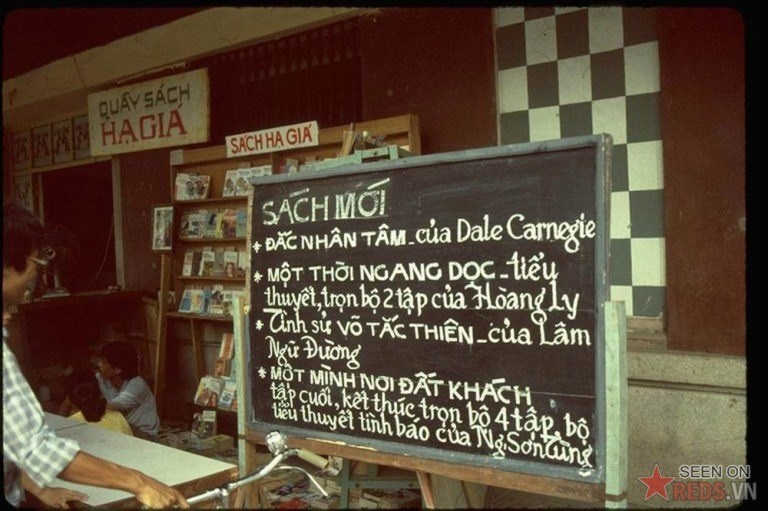 QUẦY SÁCH
HẠ GIÁ
SÁCH HẠ GIÁ
SÁCH MỚI
* ĐẮC NHÂN TÂM - của Dale Carnegie
* MỘT THỜI NGANG DỌC - tiểu
thuyết, trọn bộ 2 tập của Hoàng Ly
* Tình sử VÕ TẮC THIÊN - của Lâm
Ngữ Đường
* MỘT MÌNH NƠI ĐẤT KHÁCH
tập cuối, kết thúc trọn bộ 4 tập, bộ
tiểu thuyết tình báo của Ng. Sơn Tùng
SEEN ON
REDS.VN